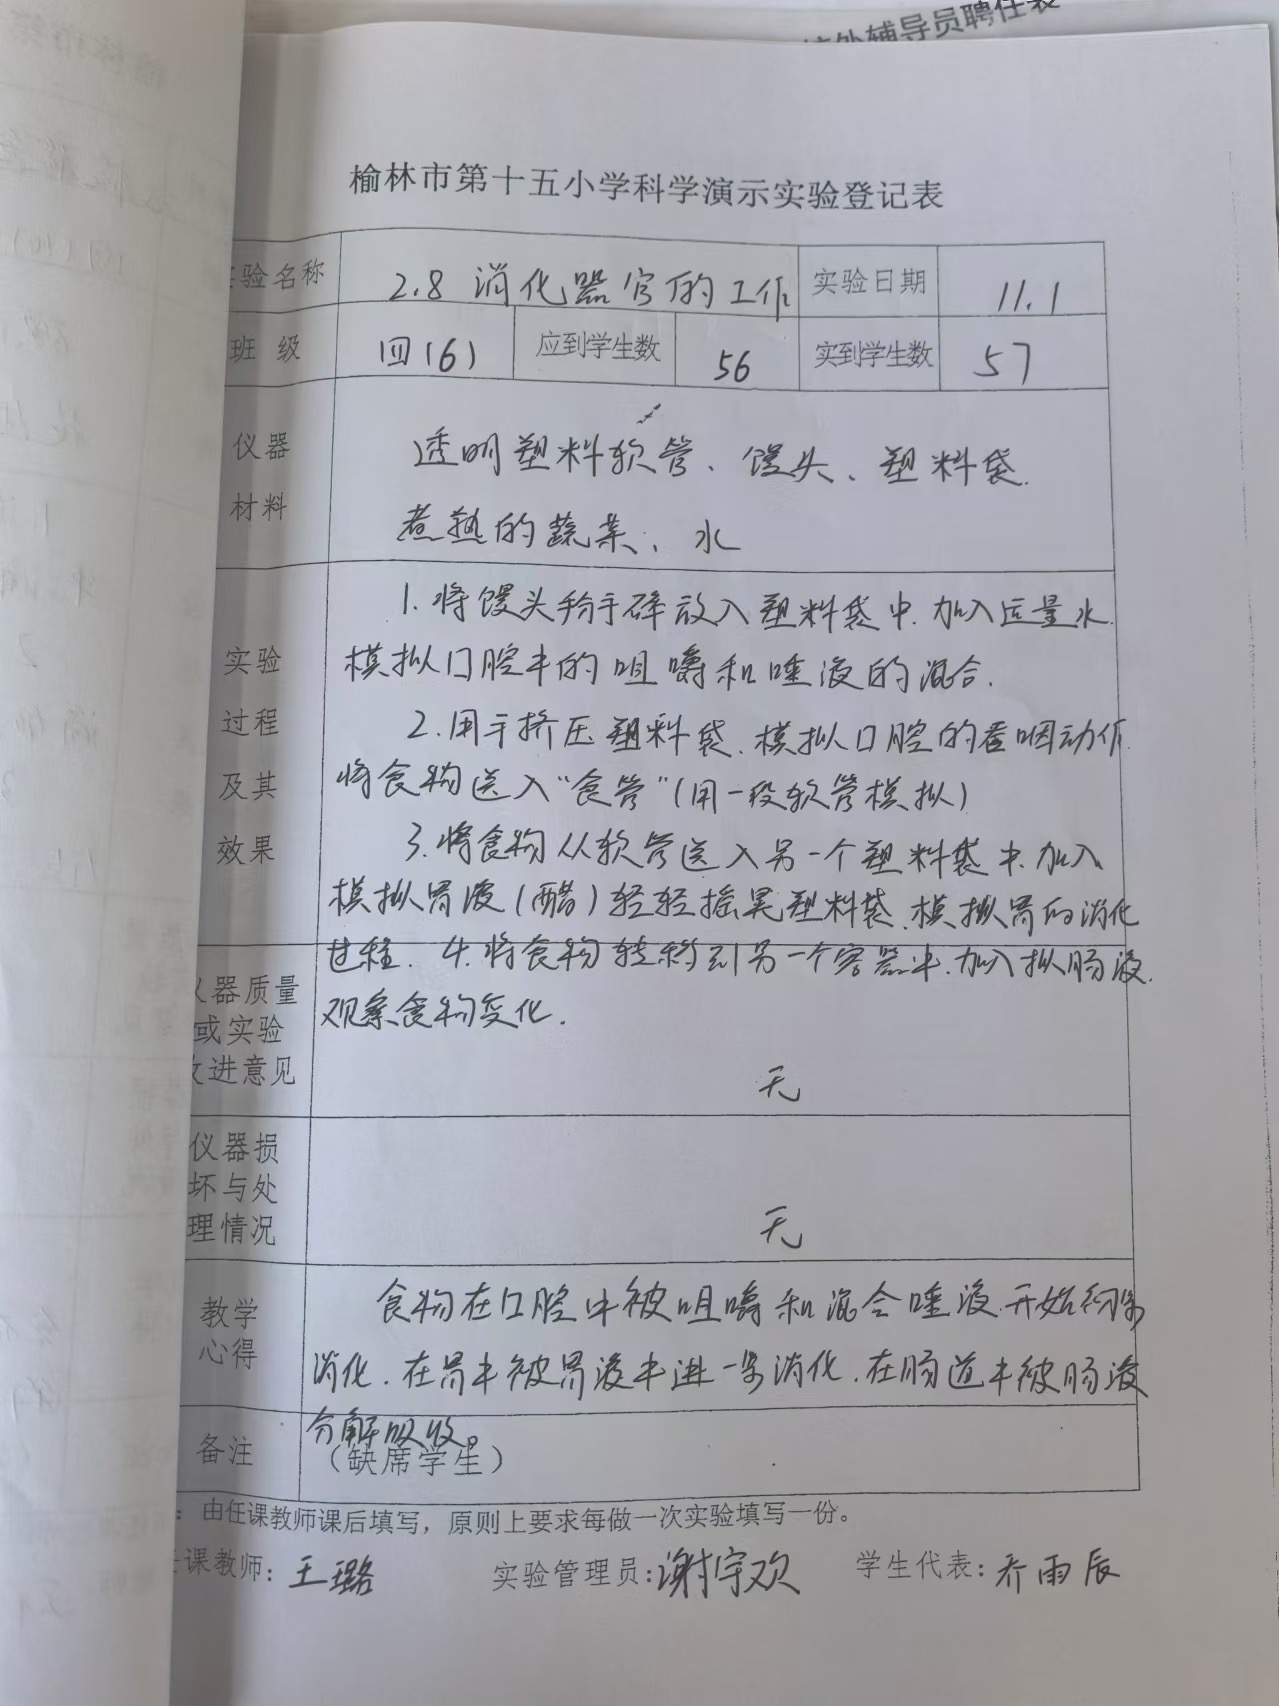 校外辅导员聘任表
榆林市第十五小学科学演示实验登记表
验名称 2.8 消化器官的工作 实验日期 11.1
班 级 四(6) 应到学生数 56 实到学生数 57
仪器 透明塑料软管、馒头、塑料袋.
材料 煮熟的蔬菜、水
1.将馒头 碎放入塑料袋中.加入适量水.
实验 模拟口腔中的咀嚼和唾液的混合.
过程 2.用手挤压塑料袋.模拟口腔的吞咽动作.
及其 将食物送入“食管”(用一段软管模拟)
效果 3.将食物从软管送入另一个塑料袋中.加入
模拟胃液(醋)轻轻摇晃塑料袋.模拟胃的消化
过程. 4.将食物转移到另一个容器中.加入拟肠液.
器质量 观察食物变化.
或实验
进意见 无
仪器损
坏与处
理情况 无
教学 食物在口腔中被咀嚼和混合唾液.开始初步
心得 消化.在胃中被胃液中进一步消化.在肠道中被肠液
分解吸收。
备注 (缺席学生)
：由任课教师课后填写，原则上要求每做一次实验填写一份。
课教师:王璐 实验管理员:谢宇欢 学生代表:乔雨辰